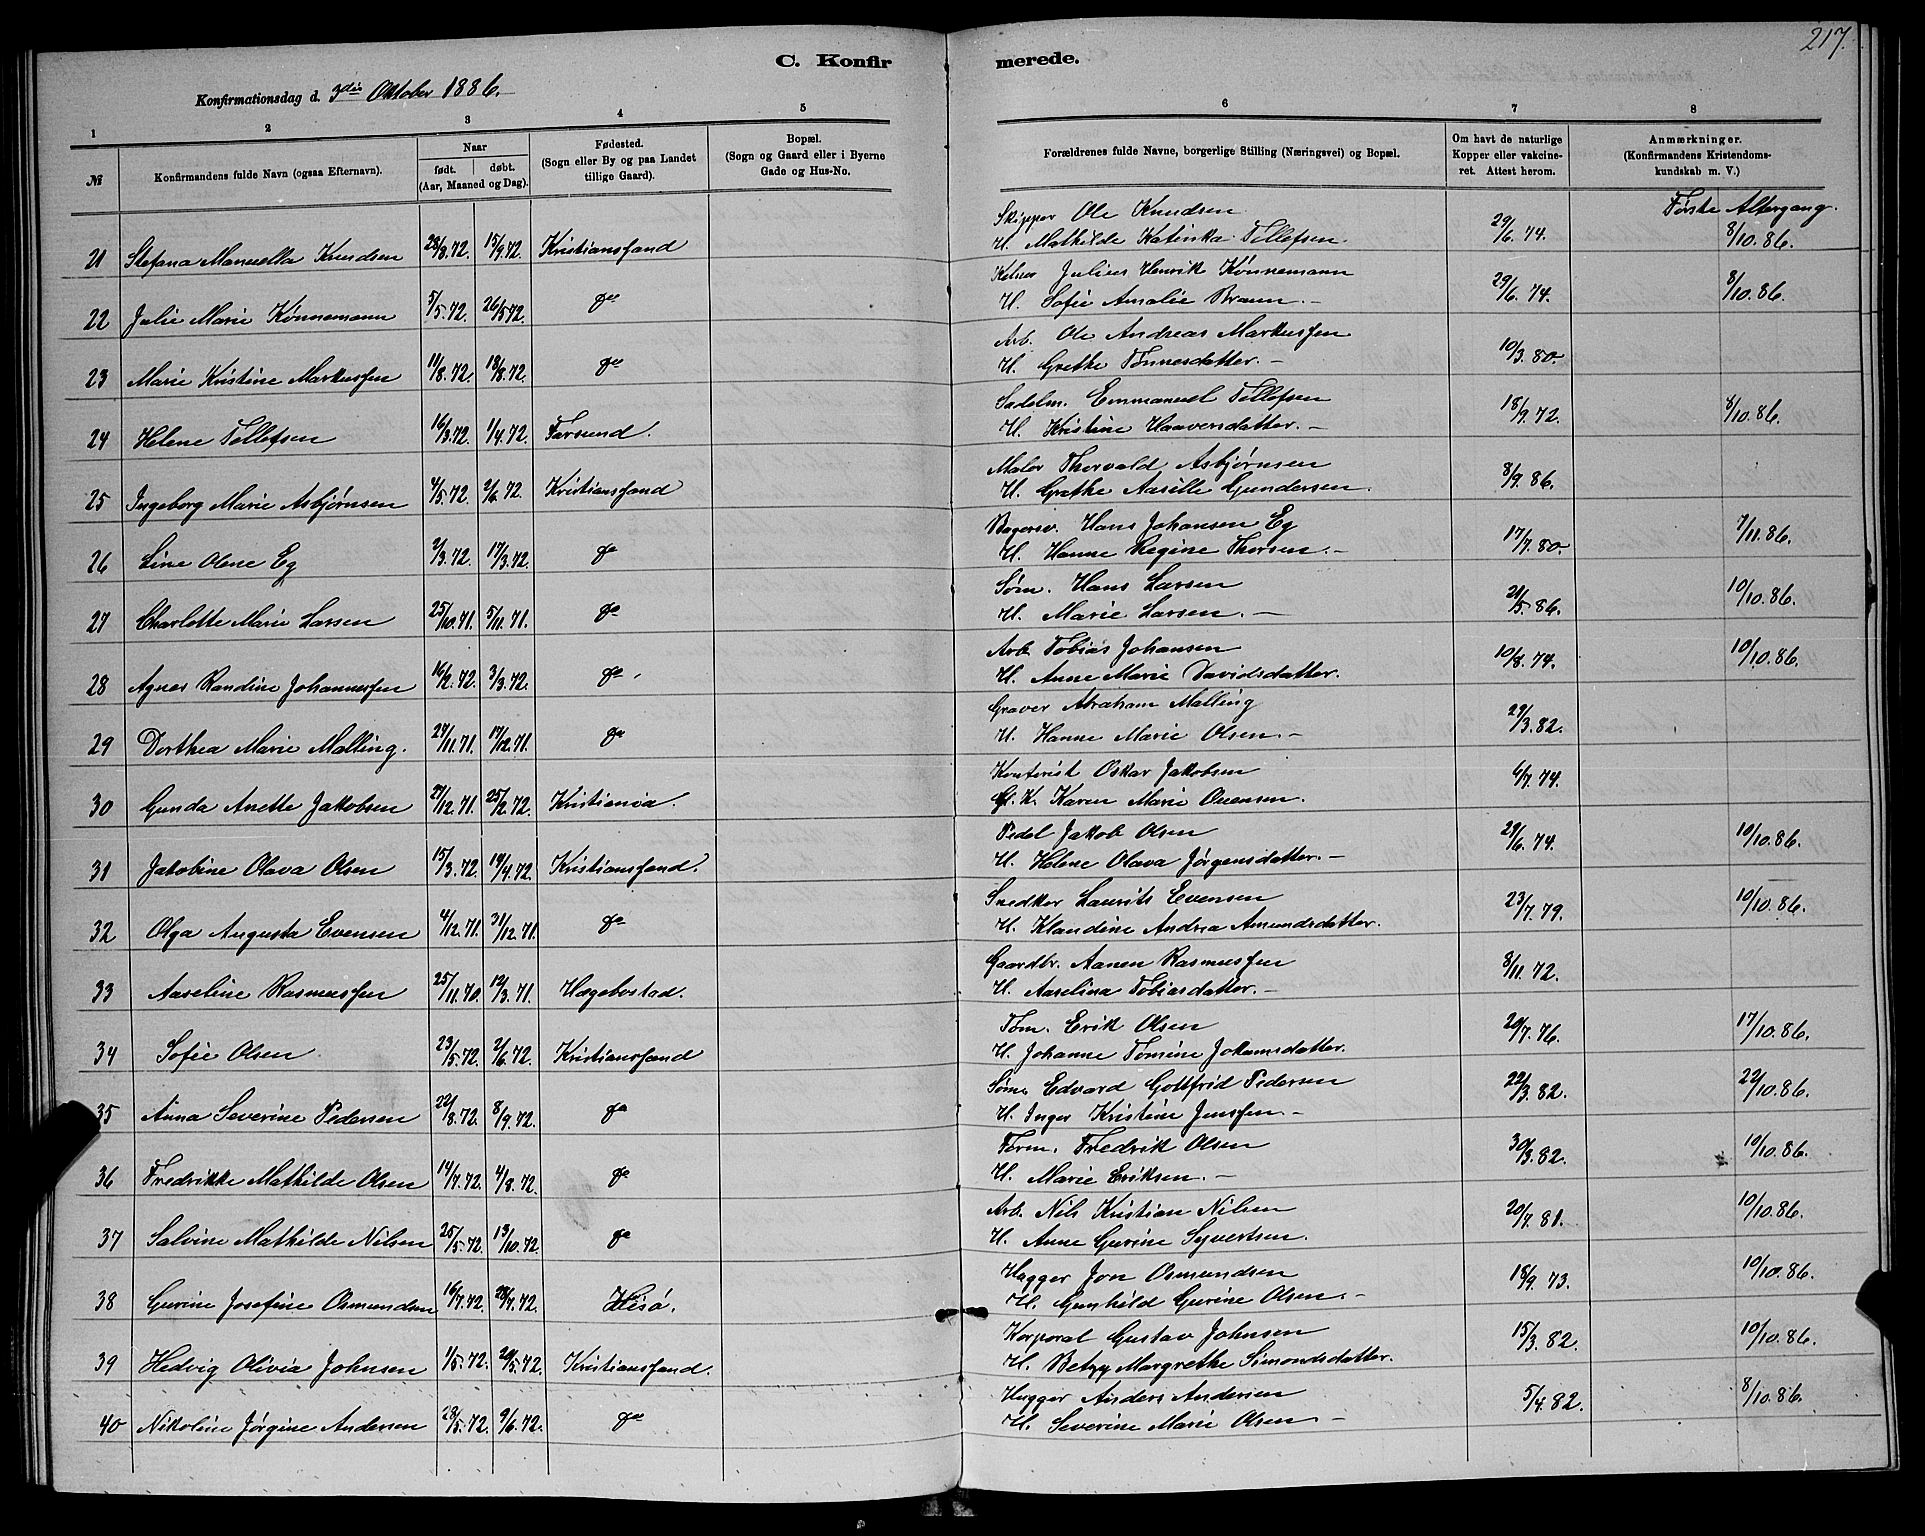 217.
C. Konfirmerede.
Konfirmationsdag d. 3die Oktober 1886.
1 2 3 4 5 6 7 8
№ Konfirmandens fulde Navn (ogsaa Efternavn). Naar født. døbt. (Aar, Maaned og Dag). Fødested. (Sogn eller By og paa Landet tillige Gaard). Bopæl. (Sogn og Gaard eller i Byerne Gade og Hus-No. Forældrenes fulde Navne, borgerlige Stilling (Næringsvei) og Bopæl. Om havt de naturlige Kopper eller vakcineret. Attest herom. Anmærkninger. (Konfirmandens Kristendomskundskab m. V.)
Første Altergang.
21 Stefana Manuella Knudsen 28/8.72. 15/9.72. Kristianssand Skipper Ole Knudsen
H. Mathilde Katinka Tellefsen. 29/6.74. 8/10.86.
22 Julie Marie Kønnemann 5/5.72. 26/5.72. do Kelner Julius Henrik Kønnemann
H. Sofie Amalie Braun.– 29/6.74. 8/10.86.
23 Marie Kristine Markussen 11/8.72. 18/8.72. do Arb. Ole Andreas Markussen
H. Grethe Tønnesdatter.– 10/3.80.
24 Helene Tellefsen 16/3.72. 1/4.72. Farsund. Sadelm. Emmanuel Tellefsen
H. Kristine Haaversdatter.– 18/9.72. 8/10.86.
25 Ingeborg Marie Asbjørnsen 4/5.72. 2/6.72. Kristianssand Maler Thorvald Asbjørnsen
H. Grethe Aasille Gundersen. 8/9.86.
26 Line Olene Eg 2/3.72. 17/3.72. do Bagersv. Hans Johansen Eg
H. Hanne Regine Thorsen.– 17/7.80. 7/11.86.
27 Charlotte Marie Larsen 25/10.71. 5/11.71. do Søm. Hans Larsen
H. Marie Larsen.– 21/5.86. 10/10.86.
28 Agnes Randine Johannessen 16/2.72. 3/3.72. do Arb. Tobias Johansen
H. Anne Marie Davidsdatter. 10/8.74. 10/10.86.
29 Dorthea Marie Malling. 27/11.71. 17/12.71. do Graver Abraham Malling
H. Hanne Marie Olsen.– 29/3.82.
30 Gunda Anette Jakobsen 27/12.71. 25/2.72. Kristiania. Kontorist Oskar Jakobsen
Karen Marie Evensen. 6/7.74.
31 Jakobine Olava Olsen 15/3.72. 19/4.72. Kristianssand. Pedel Jakob Olsen
H. Helene Olava Jørgensdatter.– 29/6.74. 10/10.86.
32 Olga Augusta Evensen 4/12.71. 31/12.71. do Snedker Laurits Evensen
H. Klaudine Andrea Amundsdatter. 23/7.79. 10/10.86.
33 Aaseline Rasmussen 25/11.70. 12/3.71. Hægebostad. Gaardbr. Aanen Rasmussen
H. Aaselina Tobiasdatter.– 8/11.72.
34 Sofie Olsen 23/5.72. 2/6.72. Kristianssand Tøm. Erik Olsen
H. Johanne Tomine Johansdatter. 20/7.76. 17/10.86.
35 Anna Severine Pedersen 22/8.72. 8/9.72. do Søm. Edvard Gottfrid Pedersen
H. Inger Kristine Jenssen.– 22/3.82. 22/10.86.
36 Fredrikke Mathilde Olsen 14/7.72. 4/8.72. do Form. Fredrik Olsen
H. Marie Eriksen.– 30/3.82. 10/10.86.
37 Salvine Mathilde Nilsen 25/5.72. 13/10.72. do Arb. Nils Kristian Nilsen
H. Anne Gurine Syvertsen. 20/7.81. 10/10.86.
38 Gurine Josefine Osmundsen 16/7.72. 28/7.72. Hisø. Hugger Jon Osmundsen
H. Gunhild Gurine Olsen.– 18/9.73. 10/10.86.
39 Hedvig Olivia Johnsen 1/5.72. 20/5.72. Kristianssand. Korporal Gustav Johnsen
H. Betzy Margrethe Simondsdatter. 15/3.82. 10/10.86.
40 Nikoline Jørgine Andersen 28/5.72. 9/6.72. do Hugger Anders Andersen
H. Severine Marie Olsen– 5/4.82. 8/10.86.